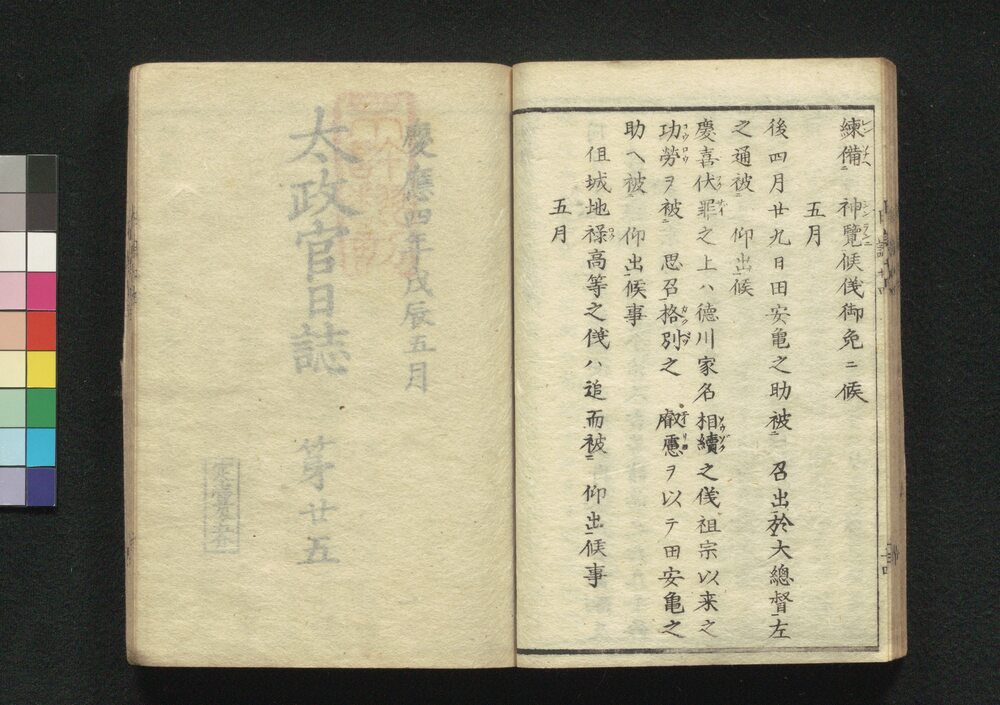 練備神覽候儀御免ニ候
五月
後四月廿九日田安亀之助被召出於大總督左
之通被仰出候
慶喜伏罪之上ハ德川家名相續之儀祖宗以来之
功勞ヲ被思召格別之叡慮ヲ以テ田安亀之
助へ被仰出候事
但城地禄高等之儀ハ追而被仰出候事
五月
慶應四年戊辰五月
太政官日誌 第廿五